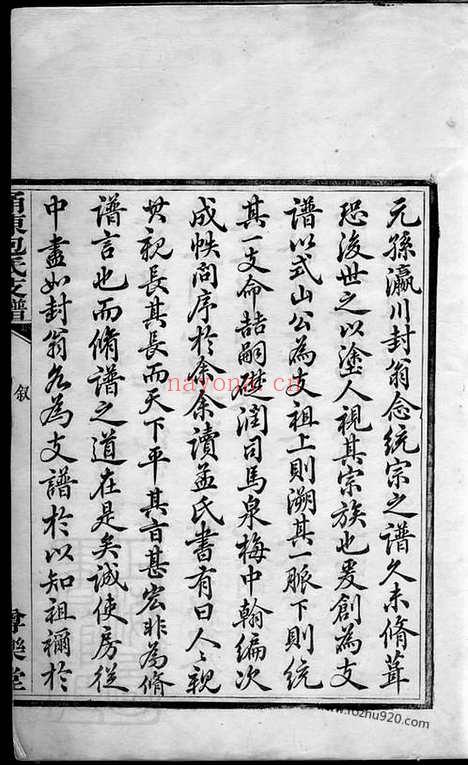 元孫瀛川封翁念統宗之譜久未脩葺
恐後世之以塗人視其宗族也爰創為支
譜以式山公為支祖上則溯其一脈下則統
其一支命喆嗣礎潤司馬泉梅中翰編次
成帙問序於余余讀孟氏書有曰人〻親
其親長其長而天下平其言甚宏非為脩
譜言也而脩譜之道在是矣誠使房從
中盡如封翁各為支譜於以知祖禰於
東包氏支譜
叙
樂堂
nayona.cn
www.fozhu920.com